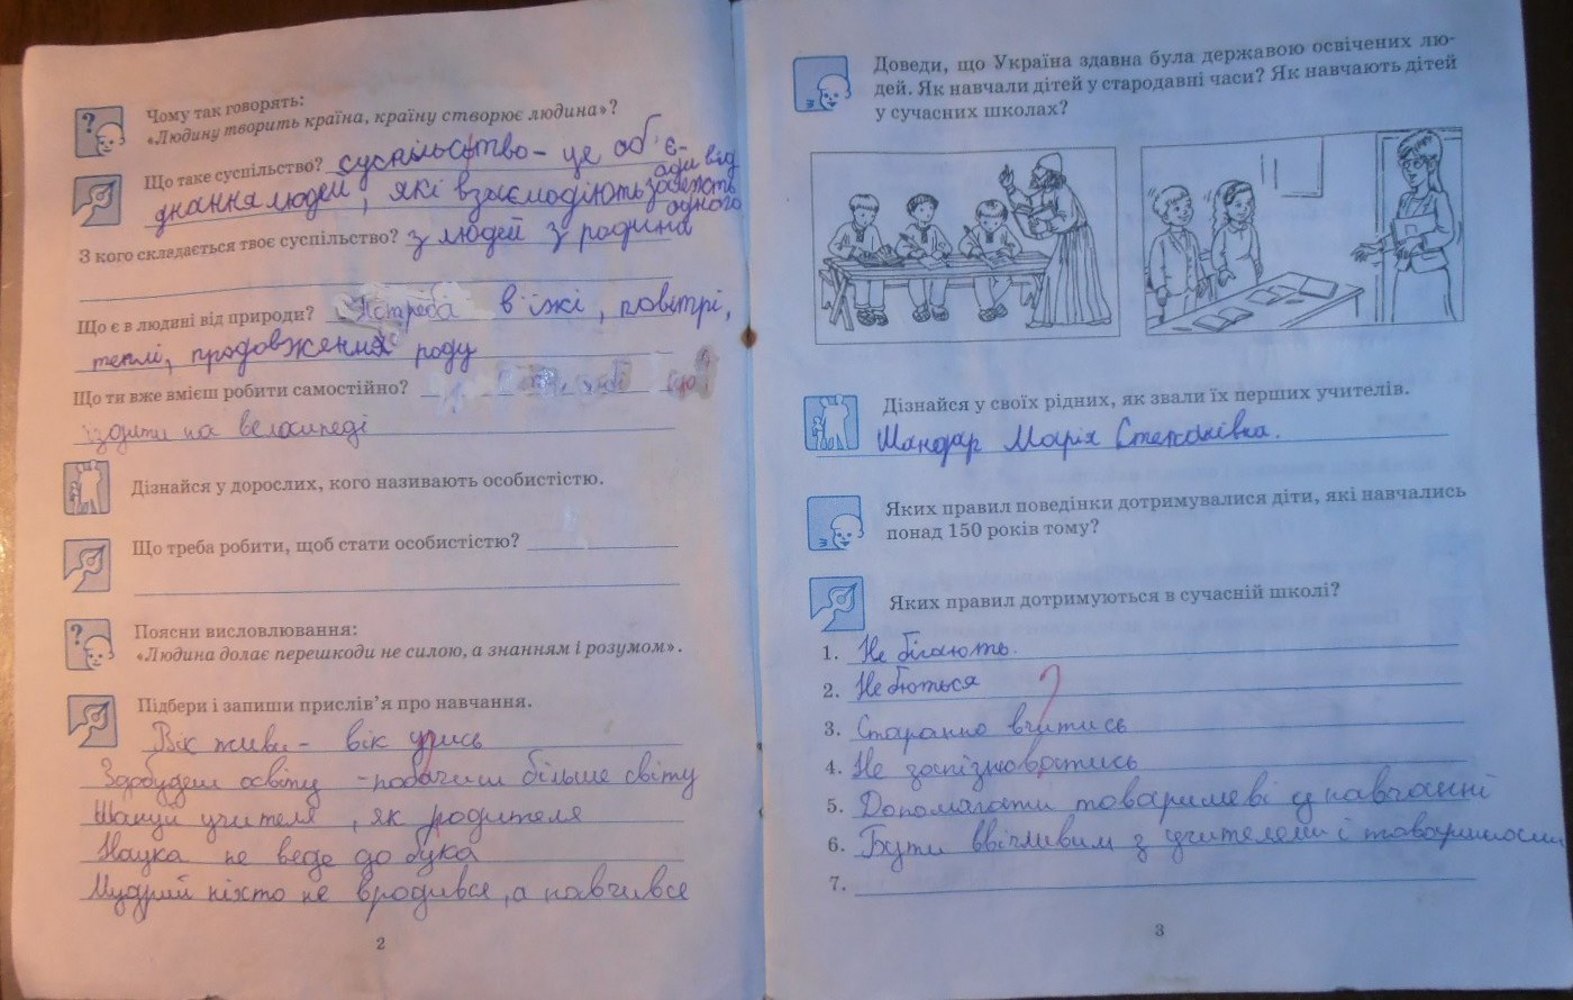 Чому так говорять:
«Людину творить країна, країну створює людина»?
Що таке суспільство? суспільство – це об'є-
днання людей, які взаємодіють залежать
один від
одного
З кого складається твоє суспільство? з людей з родина
Що є в людині від природи? Потреба в їжі, повітрі,
теплі, продовження роду
Що ти вже вмієш робити самостійно?
їздити на велосипеді
Дізнайся у дорослих, кого називають особистістю.
Що треба робити, щоб стати особистістю?
Поясни висловлювання:
«Людина долає перешкоди не силою, а знанням і розумом».
Підбери і запиши прислів'я про навчання.
Вік живи – вік учись
Здобудеш освіту – побачиш більше світу
Шануй учителя, як родителя
Наука не веде до бука
Мудрий ніхто не вродився, а навчився
2
Доведи, що Україна здавна була державою освічених лю-
дей. Як навчали дітей у стародавні часи? Як навчають дітей
у сучасних школах?
Дізнайся у своїх рідних, як звали їх перших учителів.
Шандар Марія Степанівна.
Яких правил поведінки дотримувалися діти, які навчались
понад 150 років тому?
Яких правил дотримуються в сучасній школі?
1. Не бігають.
2. Не бються
3. Старанно вчитись
4. Не запізнюватись
5. Допомагати товаришеві у навчанні
6. Бути ввічливим з учителями і товаришами
7.
3